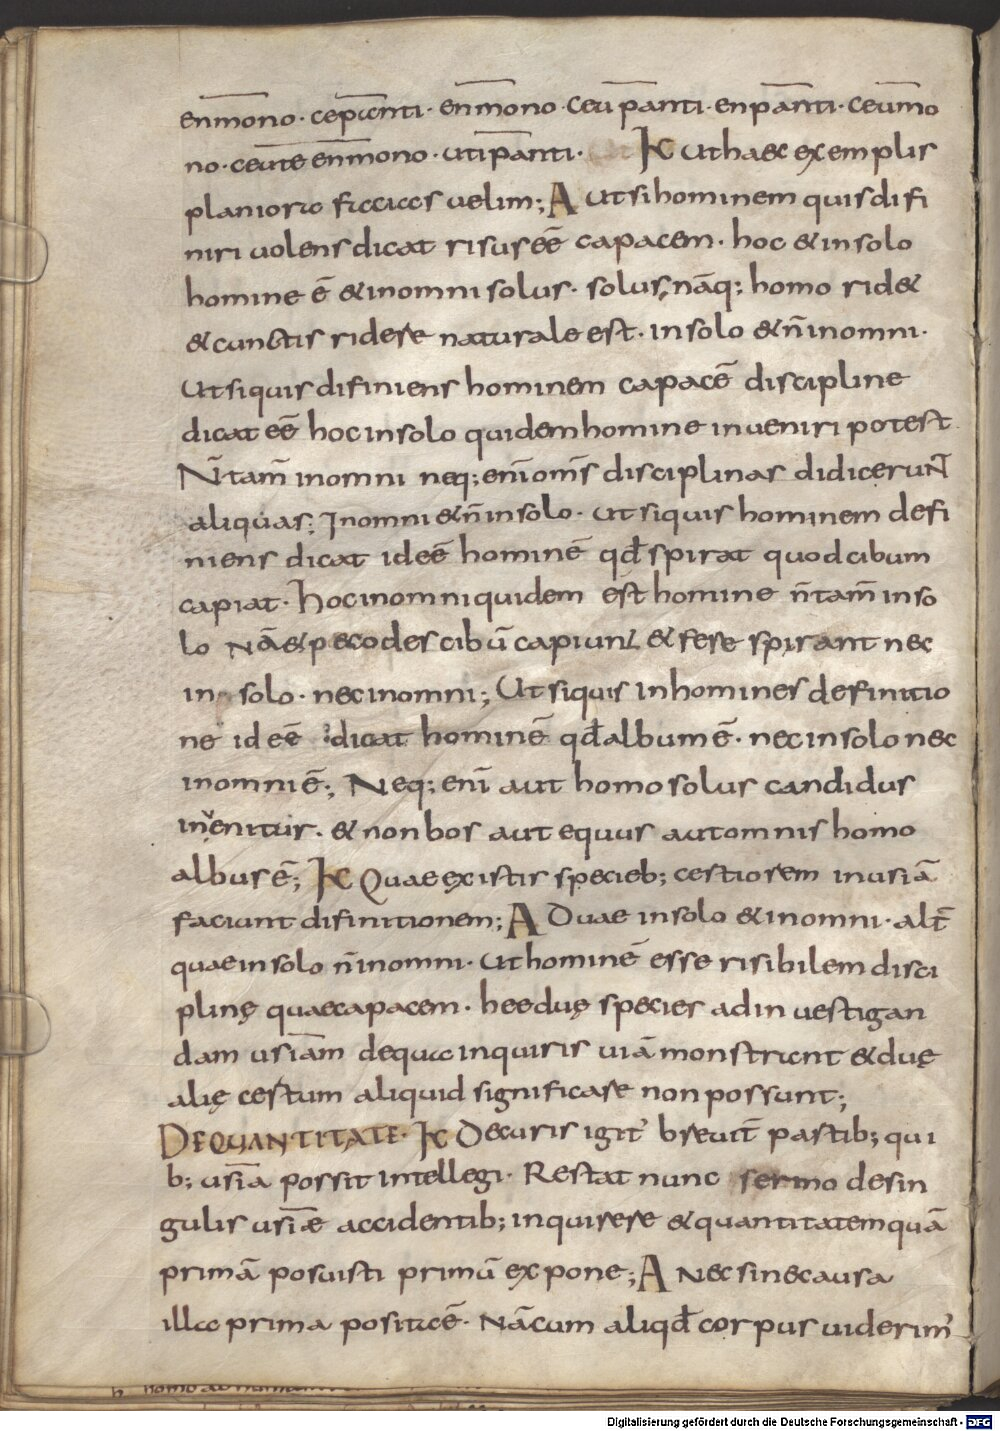 enmono· cepanti· enmono· ceu panti· enpanti· ceumo
no· ceute enmono· utipanti· K ut haec exemplis
planiora facias uelim; A ut si hominem quis difi
niri uolens dicat risus eē capacem· hoc & in solo
homine ē & in omni solus· solus nāq; homo rid&
& cunctis ridere naturale est· in solo & n̄ in omni·
Ut si quis difiniens hominem capacē discipline
dicat eē hoc in solo quidem homine inueniri potest
N̄ tam̄ in omni neq; eni om̄s disciplinas didicerunt
aliquas; In omni & n̄ in solo· ut si quis hominem defi
niens dicat id eē hominē qd̄ spirat quod cibum
capiat· hoc in omni quidem est homine n̄ tam̄ in so
lo nā & pecodes cibū capiunt & fere spirant nec
in solo· nec in omni; Ut si quis in homines definitio
ne id eē dicat hominē qd̄ album ē· nec in solo nec
in omni ē; Neq; eni aut homo solus candidus
inuenitur· & non bos aut equus aut omnis homo
albus ē; K Quae ex istis specieb; certiorem in usiā
faciunt difinitionem; A Duae in solo & in omni· alt̄
quae in solo n̄ in omni· ut hominē esse risibilem disci
plinę quae capacem· hee duę species ad inuestigan
dam usiam de qua inquiris uiā monstrant & duę
alię certum aliquid significare non possunt;
DE QUANTITATE· K Decursis igit' breuit̄ partib; qui
b; usia possit intellegi· Restat nunc sermo de sin
gulis usiae accidentib; inquirere & quantitatem quā
primā posuisti primū expone; A Nec sine causa
illa prima posita ē· Nā cum aliqd̄ corpus uiderim'
Digitalisierung gefördert durch die Deutsche Forschungsgemeinschaft - DFG